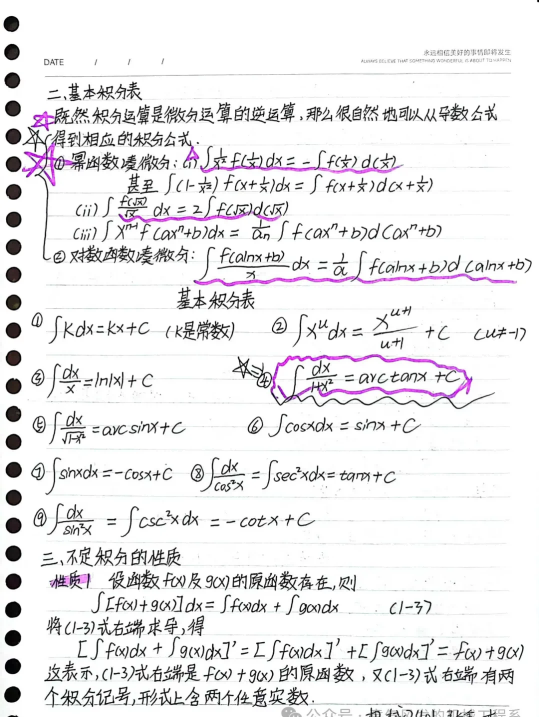 永远相信美好的事情即将发生
DATE / / /
ALWAYS BELIEVE THAT SOMETHING WONDERFUL IS ABOUT TO HAPPEN
二、基本积分表
☆既然积分运算是微分运算的逆运算,那么很自然地可以从导数公式
得到相应的积分公式.
① 幂函数凑微分: (i) ∫ 1/x² f(1/x) dx = -∫ f(1/x) d(1/x)
甚至 ∫(1-1/x²) f(x+1/x)dx = ∫ f(x+1/x) d(x+1/x)
(ii) ∫ f(√x)/√x dx = 2∫ f(√x)d(√x)
(iii) ∫ xⁿ⁻¹ f(axⁿ+b)dx = 1/an ∫ f(axⁿ+b)d(axⁿ+b)
② 对数函数凑微分: ∫ f(alnx+b)/x dx = 1/a ∫ f(alnx+b)d(alnx+b)
基本积分表
① ∫Kdx=Kx+C (K是常数) ② ∫xᵘdx = xᵘ⁺¹/(u+1) + C (u≠-1)
③ ∫dx/x = ln|x| + C ☆④ ∫ dx/(1+x²) = arctanx + C
⑤ ∫ dx/√(1-x²) = arcsinx + C ⑥ ∫cosxdx = sinx + C
⑦ ∫sinxdx = -cosx+C ⑧ ∫dx/cos²x = ∫sec²xdx = tanx + C
⑨ ∫dx/sin²x = ∫csc²xdx = -cotx + C
三、不定积分的性质
性质1 设函数f(x)及g(x)的原函数存在,则
∫[f(x)+g(x)]dx = ∫f(x)dx + ∫g(x)dx (1-3)
将(1-3)式右端求导,得
[∫f(x)dx + ∫g(x)dx]' = [∫f(x)dx]' + [∫g(x)dx]' = f(x)+g(x)
这表示,(1-3)式右端是f(x)+g(x)的原函数,又(1-3)式右端有两
个积分记号,形式上含两个任意实数.
公众号